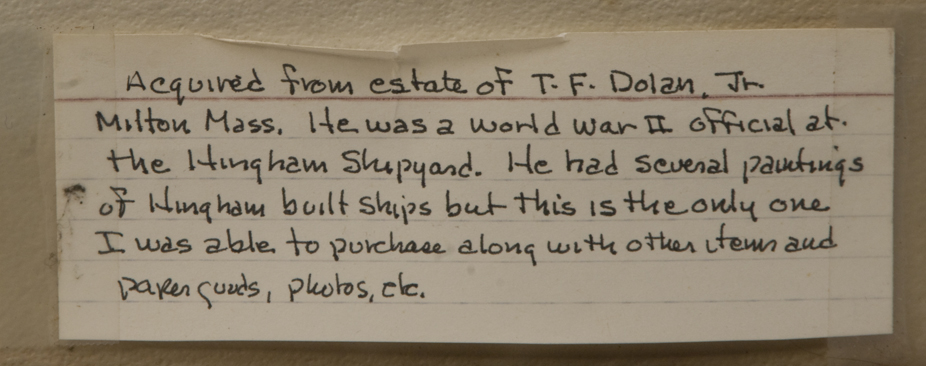 Acquired from estate of T. F. Dolan, Jr.
Milton Mass. He was a world war II official at
the Hingham Shipyard. He had several paintings
of Hingham built ships but this is the only one
I was able to purchase along with other items and
paper goods, photos, etc.